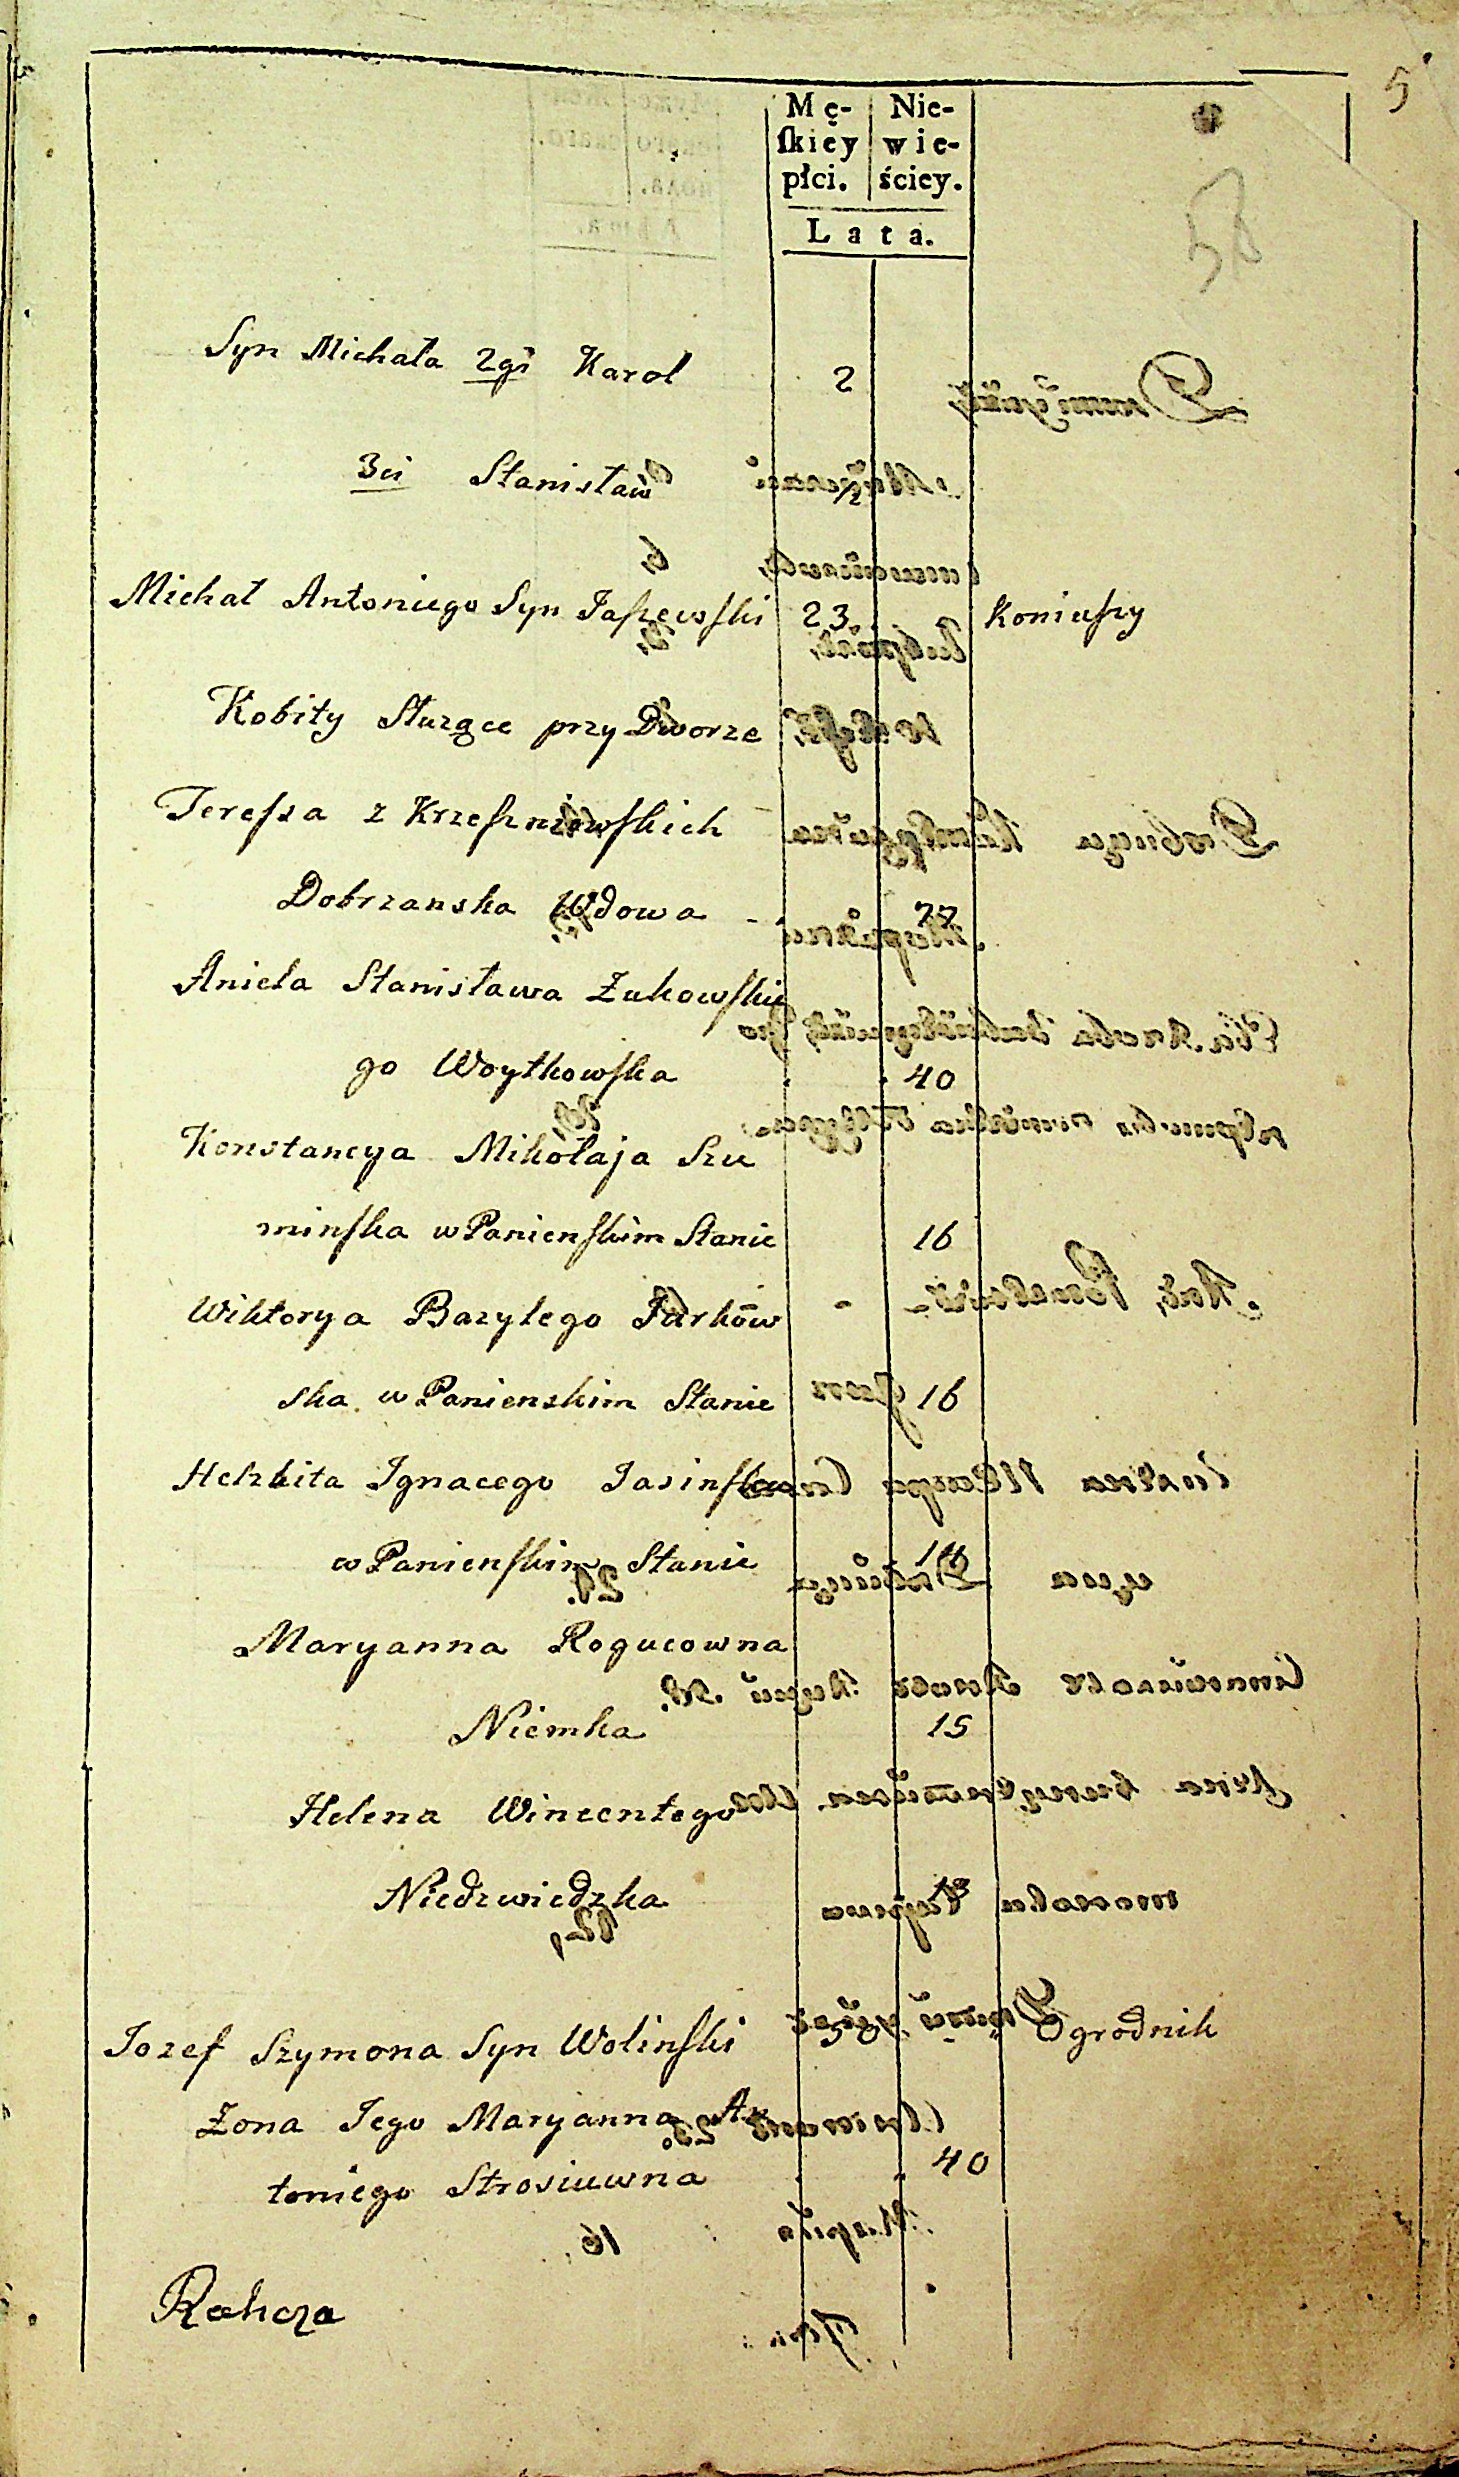 5
Mę- Nie-
ſkiey wie-
płci. ściey.
Lata.
58
Syn Michała 2gi Karol 2
3ci Stanisław 1/2
Michał Antoniego Syn Jaſzewſki 23 Koniuſzy
Kobity Służące przy Dworze
Tereſsa z Krzeſzniowſkich
Dobrzanska Wdowa - 77
Aniela Stanisława Żukowſkie
go Woytkowſka 40
Konstancya Mikołaja Szu
minſka w Panienſkim Stanie 16
Wiktorya Bazylego Jurków
ska w Panienskim Stanie 16
Helzbita Ignacego Jasinſka
w Panienſkim Stanie
Maryanna Rogucowna
Niemka 15
Helena Wincentego
Niedzwiedzka 13
Jozef Szymona Syn Wolinſki Ogrodnik
Żona Jego Maryanna An
toniego Strosiuwna 40